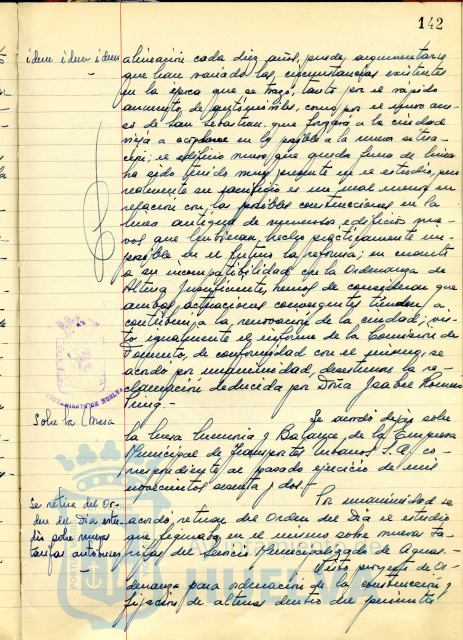 142
idem idem idem
alineación cada diez años, puede argumentarse
que han variado las circunstancias existentes
en la época que se trazó, tanto por el rápido
aumento de automóviles, como por el nuevo
de San Sebastián que forzará a la ciudad
vieja a acoplarse en lo posible a la nueva
el edificio nuevo, que queda fuera de línea
ha sido tenido muy presente en el estudio, pero
realmente su sacrificio es un mal menor en
relación con las posibles construcciones en la
línea antigua de numerosos edificios nue-
vos que hubieran hecho prácticamente im-
posible en el futuro la reforma; en cuanto
a su incompatibilidad con la Ordenanza de
Altura Insuficiente, hemos de considerar que
ambas actuaciones conseguientes tienden a
contribuir a la renovación de la ciudad; vis-
to igualmente el informe de la Comisión de
Fomento, de conformidad con el mismo, se
acordó por unanimidad, desestimar la re-
clamación deducida por Doña Isabel Romero
AYUNTAMIENTO DE HUELVA
Sobre la Mesa
Se acordó dejar sobre
la mesa Memoria y Balance, de la Empresa
Municipal de Transportes Urbanos S.A. co-
rrespondiente al pasado ejercicio de mil
novecientos sesenta y dos.-
Se retira del Or-
den del Día estu-
dio sobre nuevas
tarifas autobuses
Por unanimidad se
acordó retirar del Orden del Día el estudio
que figuraba en el mismo sobre nuevas Ta-
rifas del Servicio Municipalizado de Aguas.-
Visto proyecto de Or-
denanza para ordenación de la construcción y
fijación de alturas dentro del perímetro
Ayuntamiento de
HUELVA